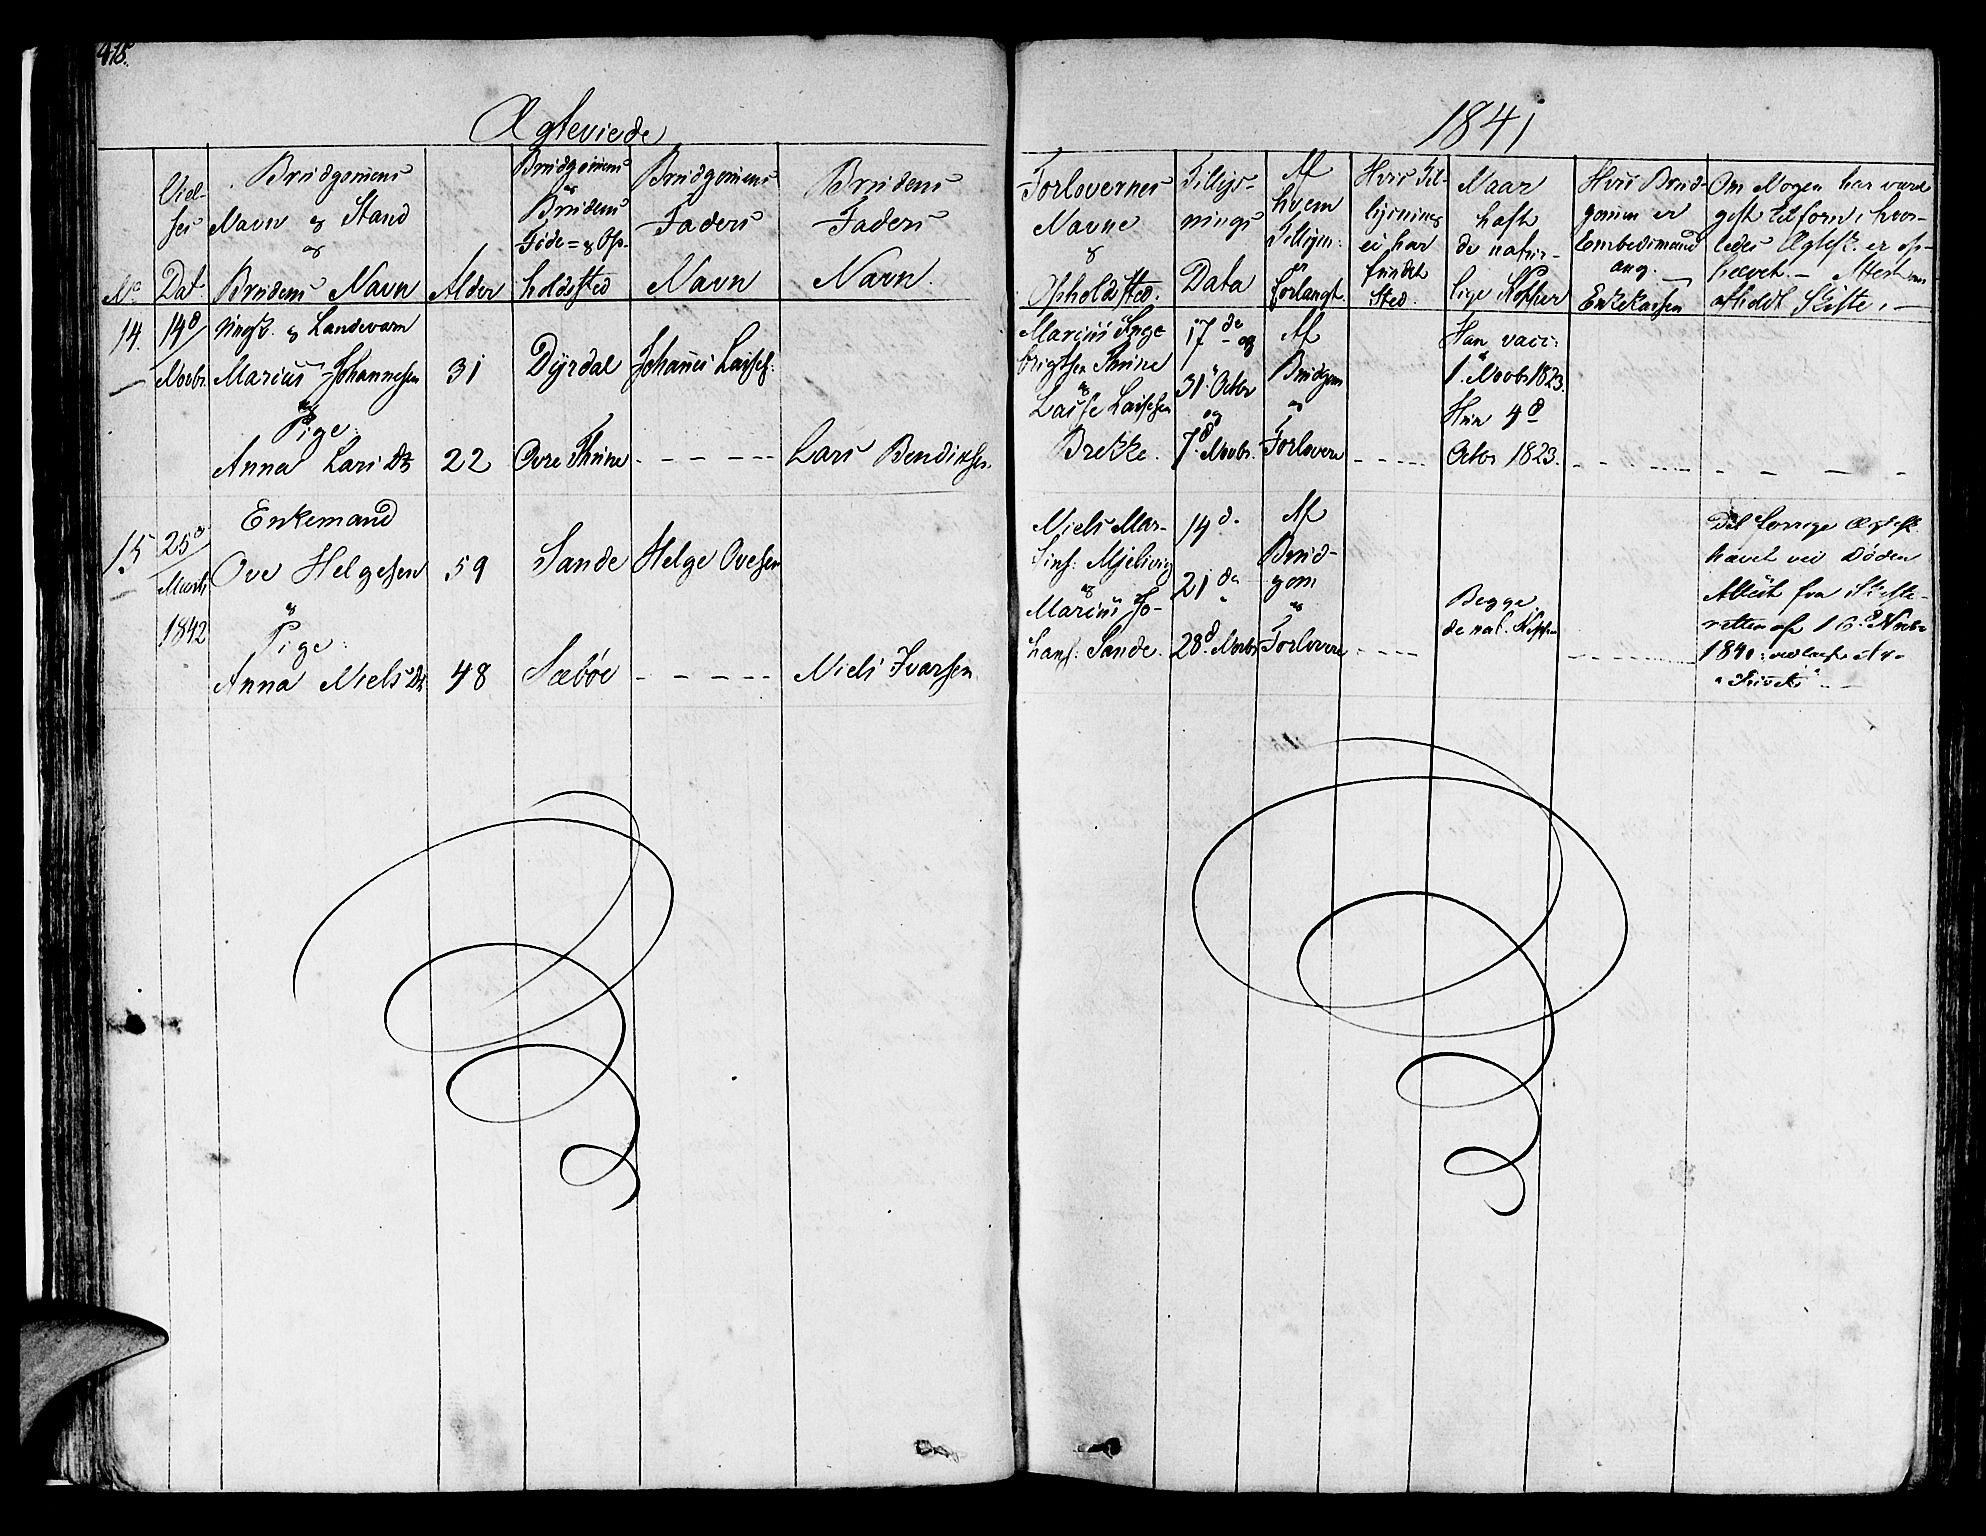 Ægteviede
1841
No
Viel-
ses
Dat.
Brudgomens
Navn & Stand
og
Brudens Navn
Alder
Brudgomens
og
Brudens
Føde= & Op-
holdsted
Brudgomens
Faders
Navn
Brudens
Faders
Navn.
Forlovernes
Navne
&
Opholdsted.
Tillys-
nings
Data
Af
hvem
Tillysn:
er
forlangt.
Hvis Til-
lysning
ei har
fundet
Sted.
Naar
hafte
de natur-
lige Kopper
Hvis Brud-
gomen er
Embedsmand
ang.
Enkekassen
Om Nogen har været
gift tilforn, hvor-
ledes Ægtesk. er op-
hævet. - Attest om
afholdt Skifte, -
14.
14d
Novbr.
Ungk. & Landeværn
Marius Johannesen
og
Pige
Anna Lars Dtr
31
22
Dyrdal
Øvre Thune
Johanes Lasses:
- - - -
Lars Bendixsen
Marius Inge
brigtsen Thune
og
Lasse Lassesen
Brekke.
17de og
31. Octbr
og
7d Novbr.
Af
Brudgom
og
Forlovere
- - - -
Han vacc:
1. Novbr 1823.
Hun 4d
Octbr 1823.
- - - -
- - - -
15
25d
Marts
1842
Enkemand
Ove Helgesen
og
Pige:
Anna Niels Dtr
59
48
Sande
Sæbøe
Helge Ovesen
- - - -
Niels Ivarsen
Niels Mar-
tins: Mjelvig
og
Marius Jo-
hans: Sande.
14d.
21de
28d Novbr
Af
Brud-
gom
og
Forlovere
- - - -
Begge
de nat. Kopper
- - - -
Det forrige Ægtesk.
hævet ved Døden
Attest fra Skifte-
retten af 16d Novbr
1840